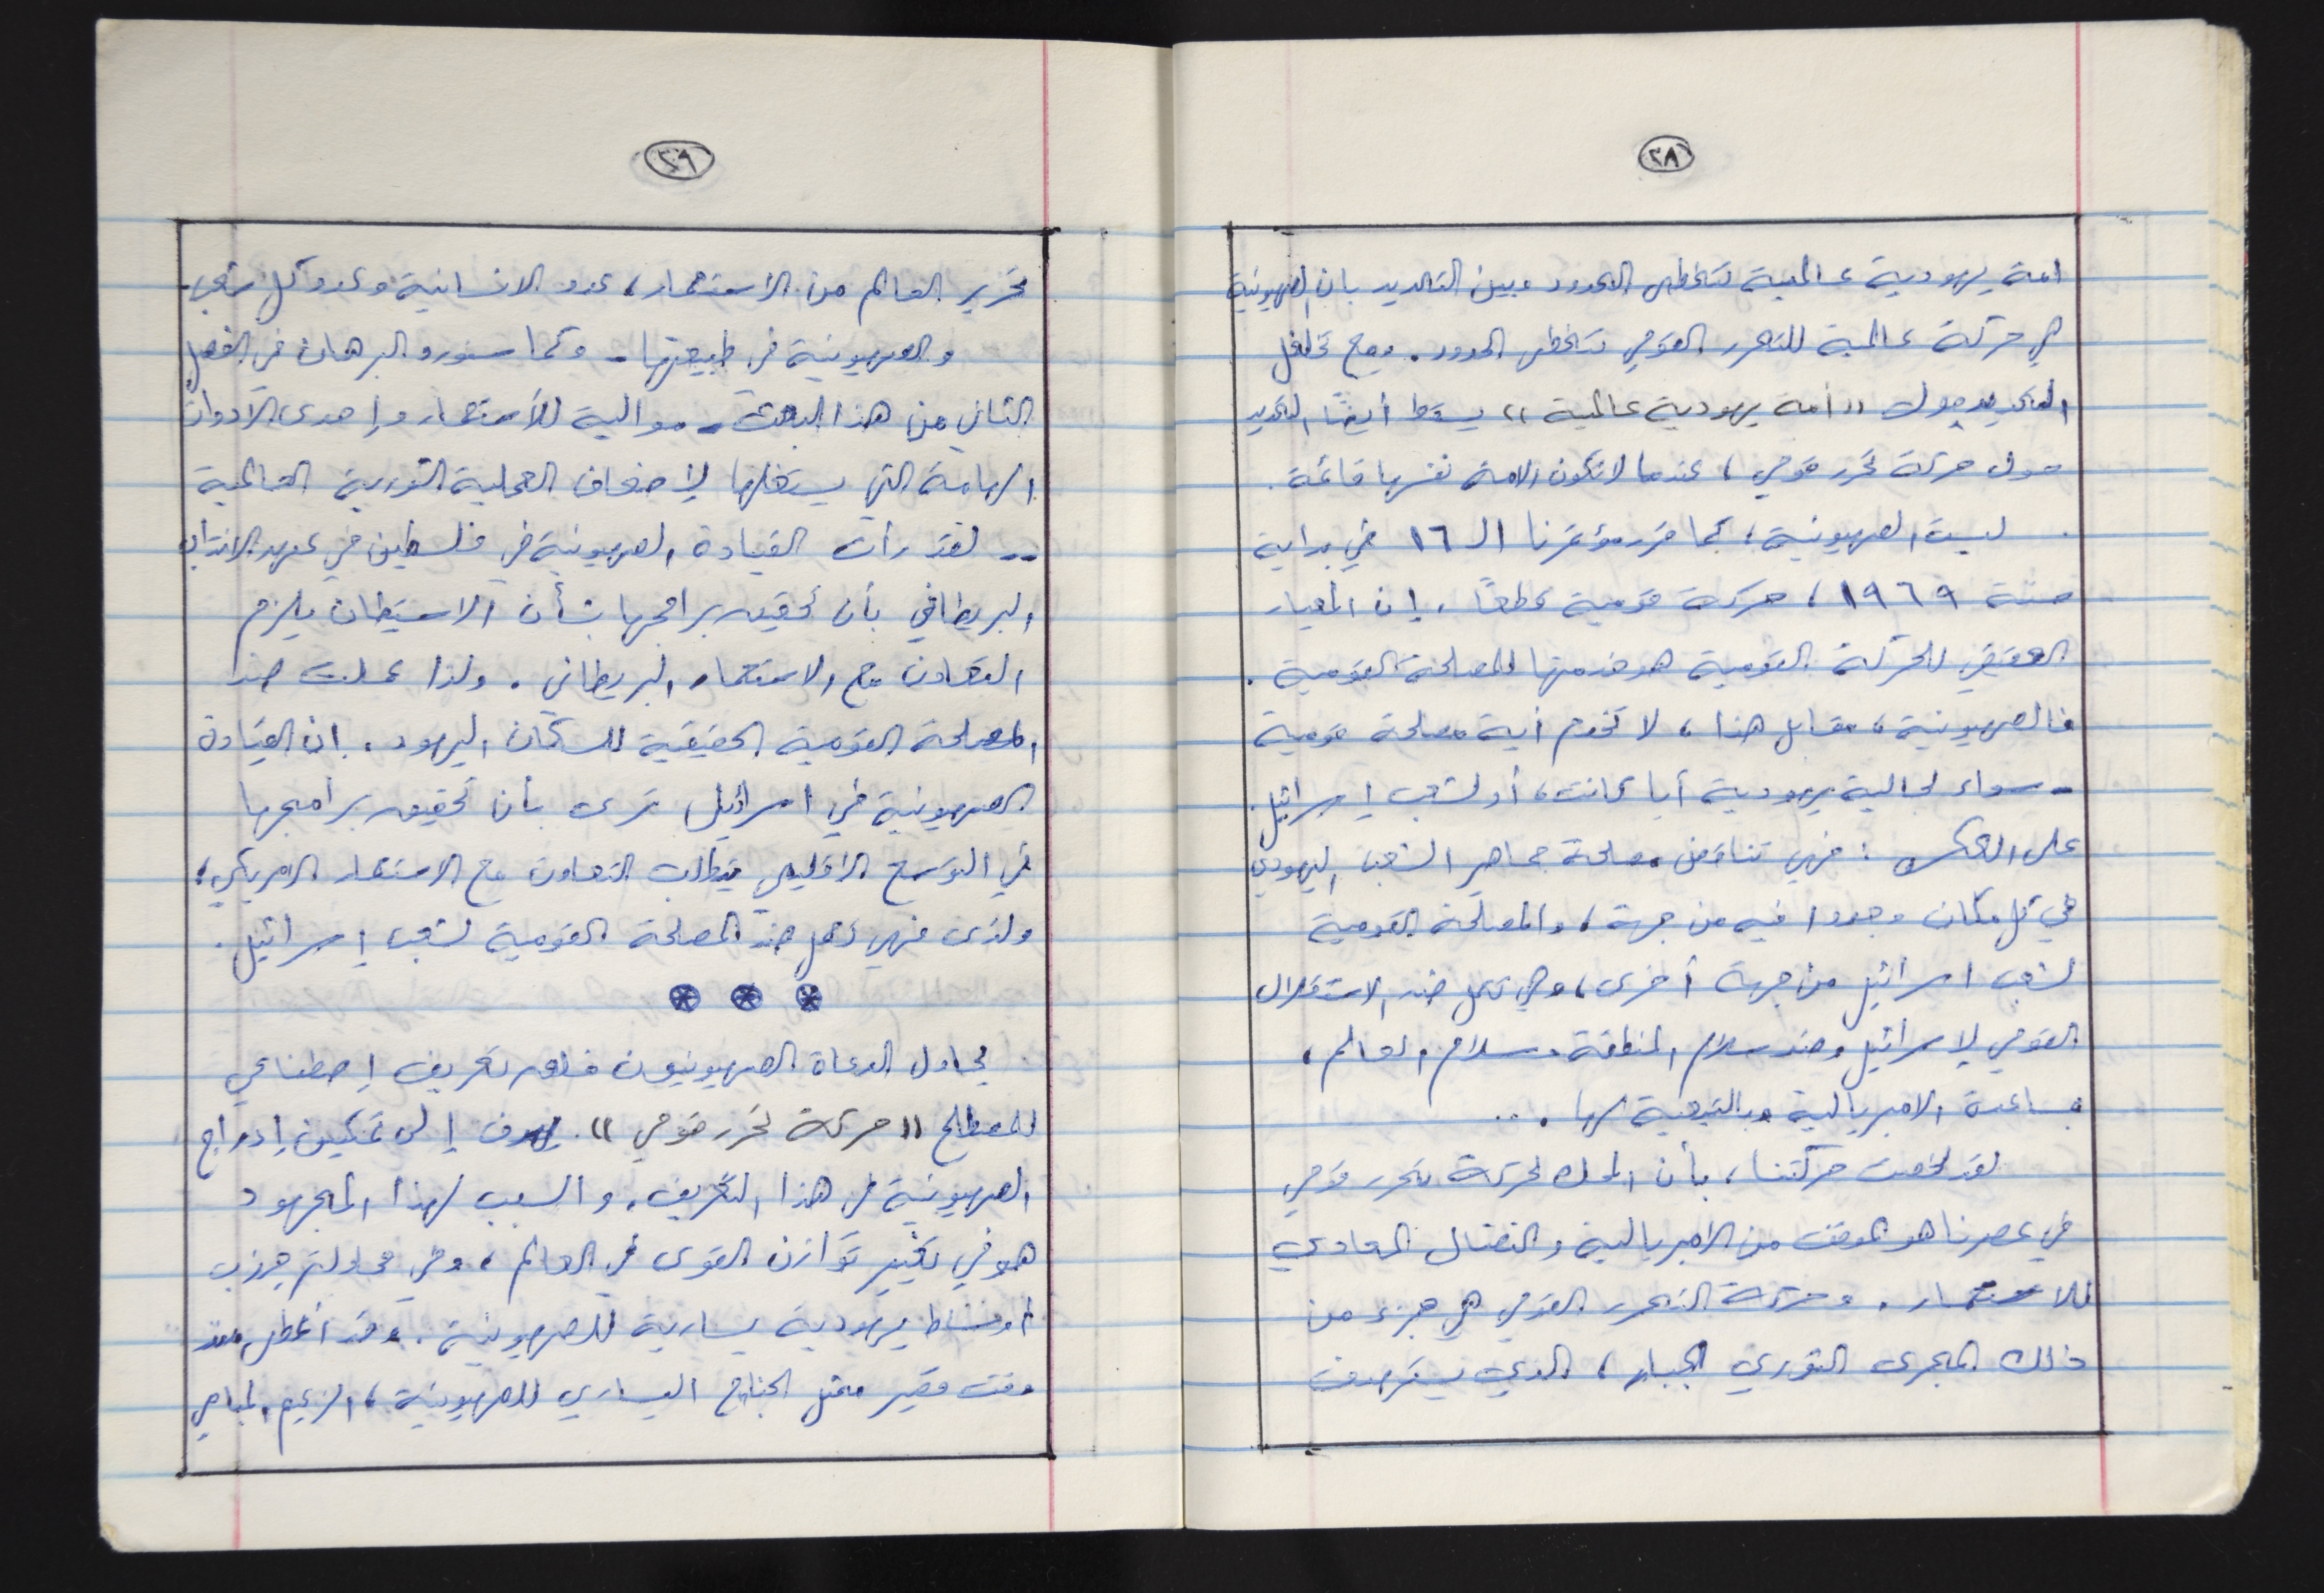 ٢٨
امة يهودية عالمية تتخطى الحدود وبين التحديد بان الصهيونية
هي حركة عالمية للتحرر القومي تتخطى الحدود. ومع تخلخل
التحديد حول "أمة يهودية عالمية" يسقط أيضًا التحديد
حول حركة تحرر قومي، عندما لا تكون الامة نفسها قائمة.
ليست الصهيونية، كما قرر مؤتمرنا الـ ١٦ في بداية
سنة ١٩٦٩، حركة قومية قطعًا، إن المعيار
الحقيقي للحركة القومية هو خدمتها للمصلحة القومية.
فالصهيونية، مقابل هذا، لا تخدم أية مصلحة قومية
- سواء لجالية يهودية أيا كانت، أو لشعب إسرائيل.
على العكس: فهي تناقض مصلحة جماهير الشعب اليهودي
في كل مكان وجدوا فيه من جهة، والمصلحة القومية
لشعب اسرائيل من جهة أخرى، وهي تعمل ضد الاستقلال
القومي لإسرائيل وضد سلام المنطقة وسلام العالم،
بمساعدة الامبريالية وبالتبعية لها...
لقد لخصت حركتنا، بأن المحك لحركة تحرر قومي
في عصرنا هو الموقف من الامبريالية والنضال المعادي
للاستعمار. وحركة التحرر القومي هي جزء من
ذلك المجرى الثوري الجبار، الذي يستهدف
٢٩
تحرير العالم من الاستعمار، عدو الانسانية وعدو كل شعب
والصهيونية في طبيعتها - وكما سنورد البرهان في الفصل
الثاني من هذا البحث - موالية للأستعمار وإحدى الأدوات
الهامة التي يستغلها لإضعاف العملية الثورية العالمية
-- لقد رأت القيادة الصهيونية في فلسطين في عهد الانتداب
البريطاني بأن تحقيق برامجها بشأن الاستيطان يلزم
التعاون مع الاستعمار البريطاني. ولذا عملت ضد
المصلحة القومية الحقيقية للسكان اليهود. ان القيادة
الصهيونية في اسرائيل ترى بأن تحقيق برامجها
في التوسع الاقليمي يتطلب التعاون مع الاستعمار الامريكي،
ولذى فهي تعمل ضد المصلحة القومية لشعب إسرائيل.
يحاول الدعاة الصهيونيون خلق تعريف إصطناعي
للمصطلح "حركة تحرر قومي". يهدف إلى تمكين إدراج
الصهيونية في هذا التعريف. والسبب لهذا المجهود
هو في تغيير توازن القوى في العالم، وفي محاولة جذب
أوساط يهودية يسارية للصهيونية. وقد أعطى منذ
وقت قصير ممثل الجناح اليساري للصهيونية، الزعيم المبامي